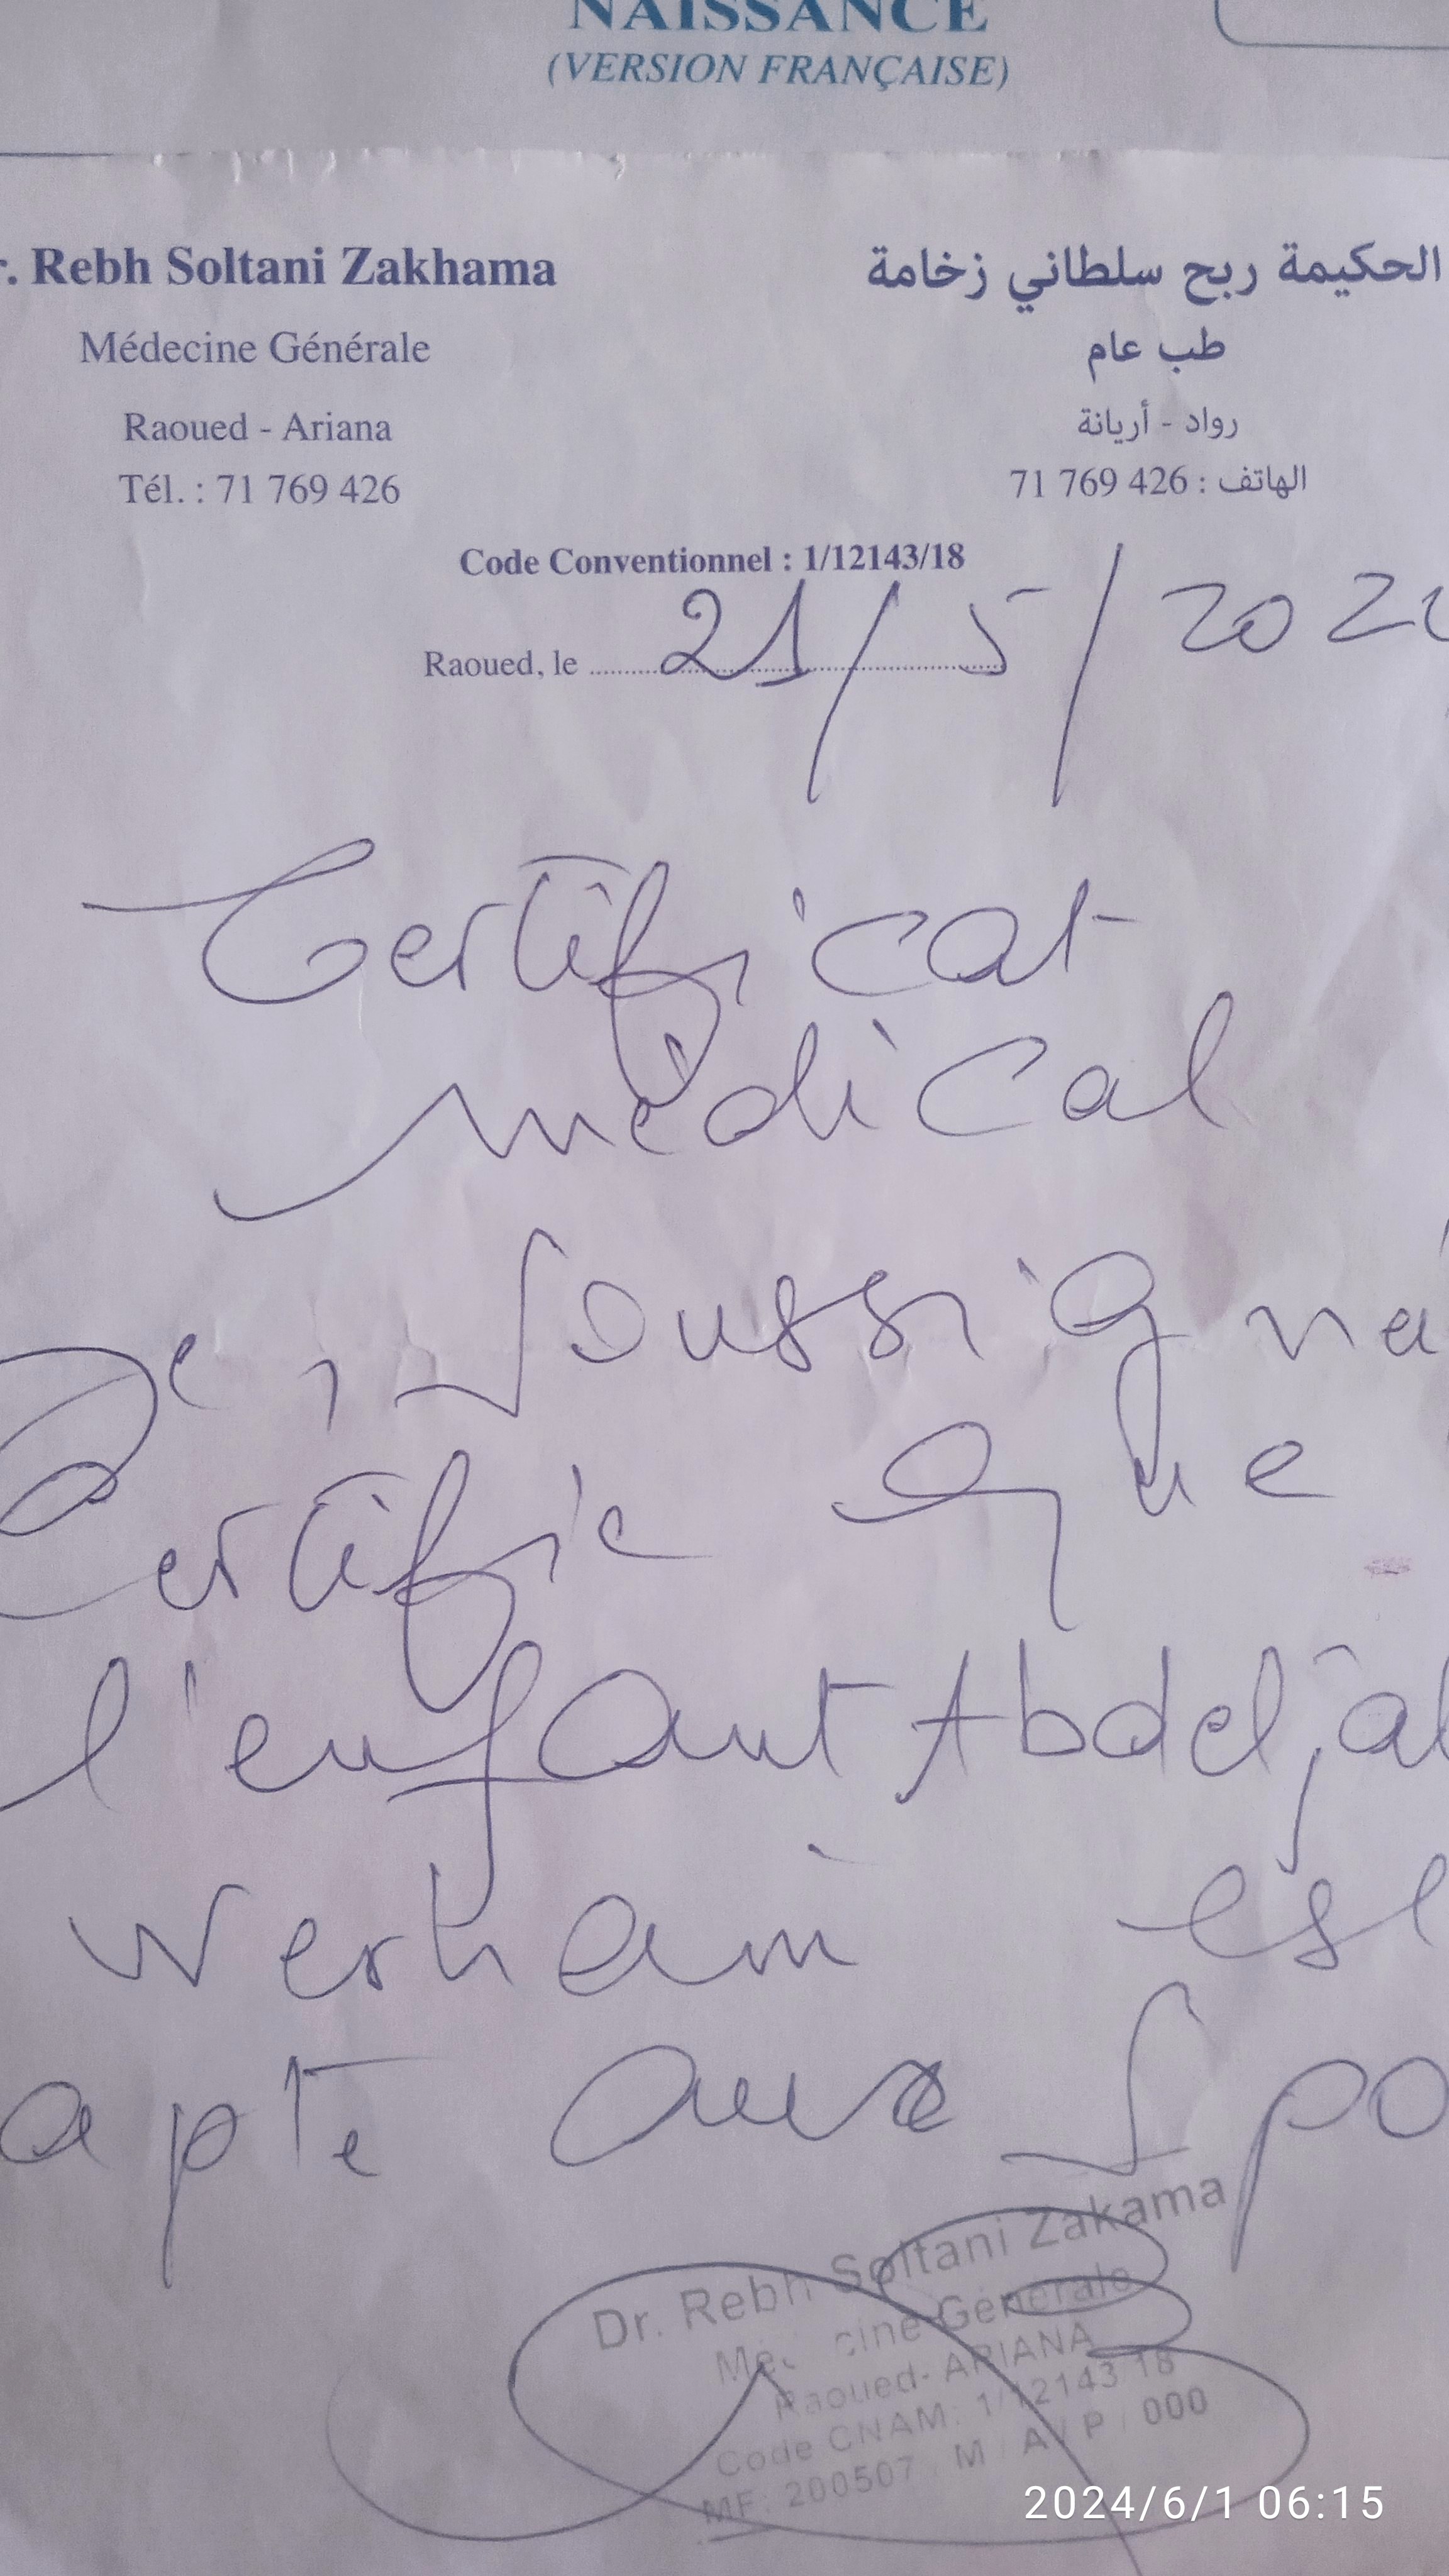 NAISSANCE
(VERSION FRANÇAISE)
r. Rebh Soltani Zakhama
الحكيمة ربح سلطاني زخامة
Médecine Générale
طب عام
Raoued - Ariana
رواد - أريانة
Tél. : 71 769 426
الهاتف : 426 769 71
Code Conventionnel : 1/12143/18
Raoued, le 21/5/202
Certificat
médical
Je, soussigné
Certifie que
l'enfant Abdeljal
est
apte aux spo
Dr. Rebh Soltani Zakama
Générale
Raoued- ARIANA
Code CNAM: 1/12143 18
MF: 200507 / M / A / P / 000
2024/6/1 06:15